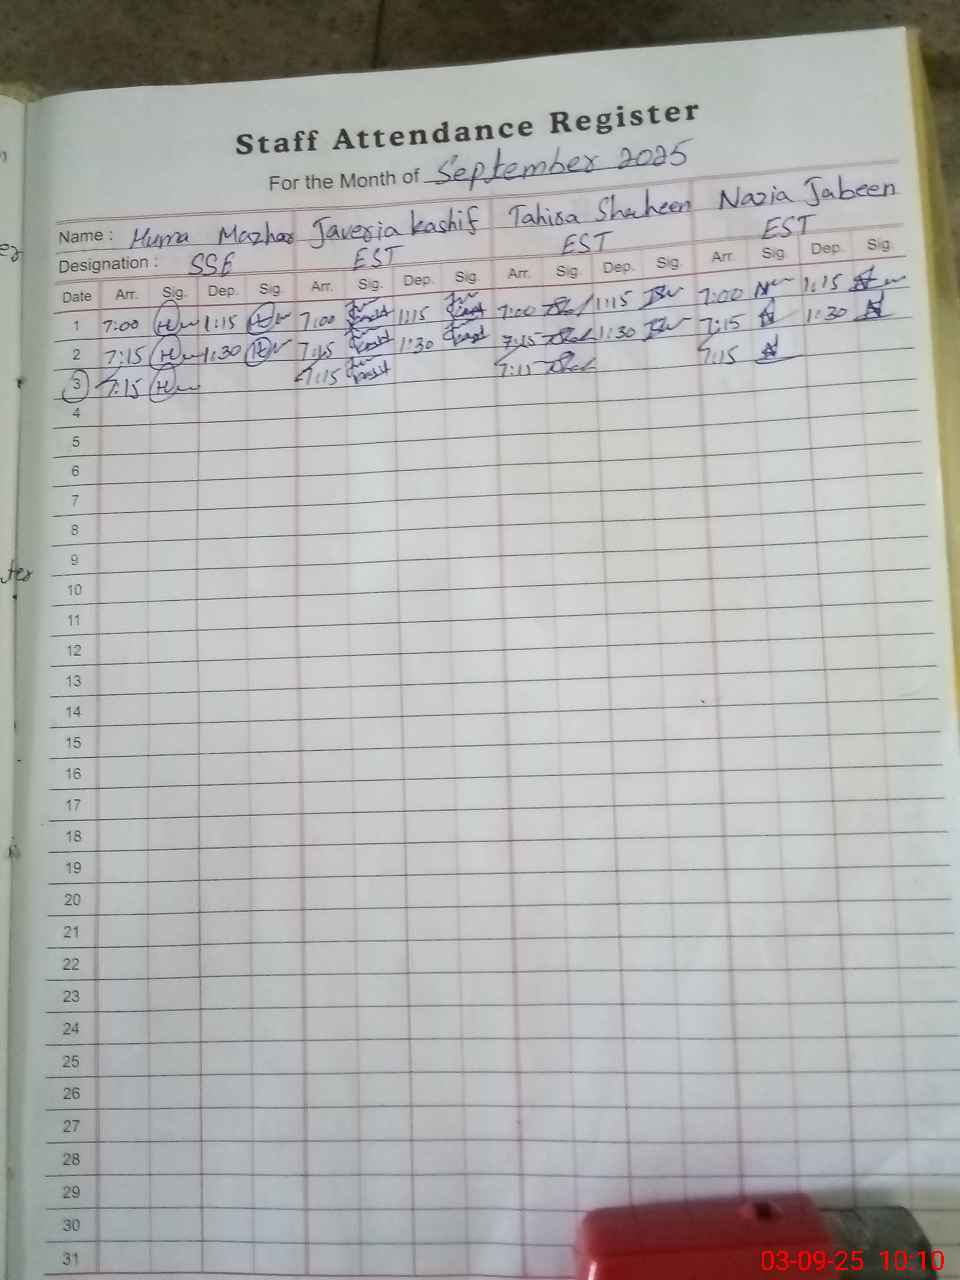 Staff Attendance Register
For the Month of September 2025
Name : Huma Mazhar Javeria kashif Tahira Shaheen Nazia Jabeen
Designation : SSE EST EST EST
Date Arr. Sig. Dep. Sig. Arr. Sig. Dep. Sig. Arr. Sig. Dep. Sig. Arr. Sig. Dep. Sig.
1 7:00 1:15 7:00 1:15 7:00 1:15 7:00 1:15
2 7:15 1:30 7:15 1:30 7:15 1:30 7:15 1:30
3 7:15 7:15 7:15 7:15
4
5
6
7
8
9
10
11
12
13
14
15
16
17
18
19
20
21
22
23
24
25
26
27
28
29
30
31
03-09-25 10:10